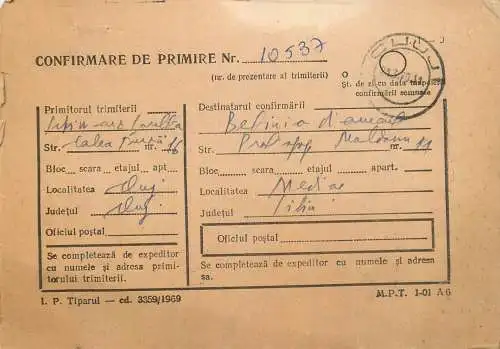 CONFIRMARE DE PRIMIRE Nr. 10537
(nr. de prezentare al trimiterii)
O
Șt. de zi cu data
confirmării semnate
CLUJ
Primitorul trimiterii
Str. Calea nr. 16
Bloc scara etajul apt.
Localitatea Cluj
Județul Cluj
Oficiul poștal
Se completează de expeditor
cu numele și adresa primi-
torului trimiterii.
Destinatarul confirmării
Str. Protopop Moldovan nr. 11
Bloc scara etajul apart.
Localitatea Mediaș
Județul Sibiu
Oficiul poștal
Se completează de expeditor cu numele și adresa
sa.
I. P. Tiparul — cd. 3359/1969
M.P.T. 1-01 A6